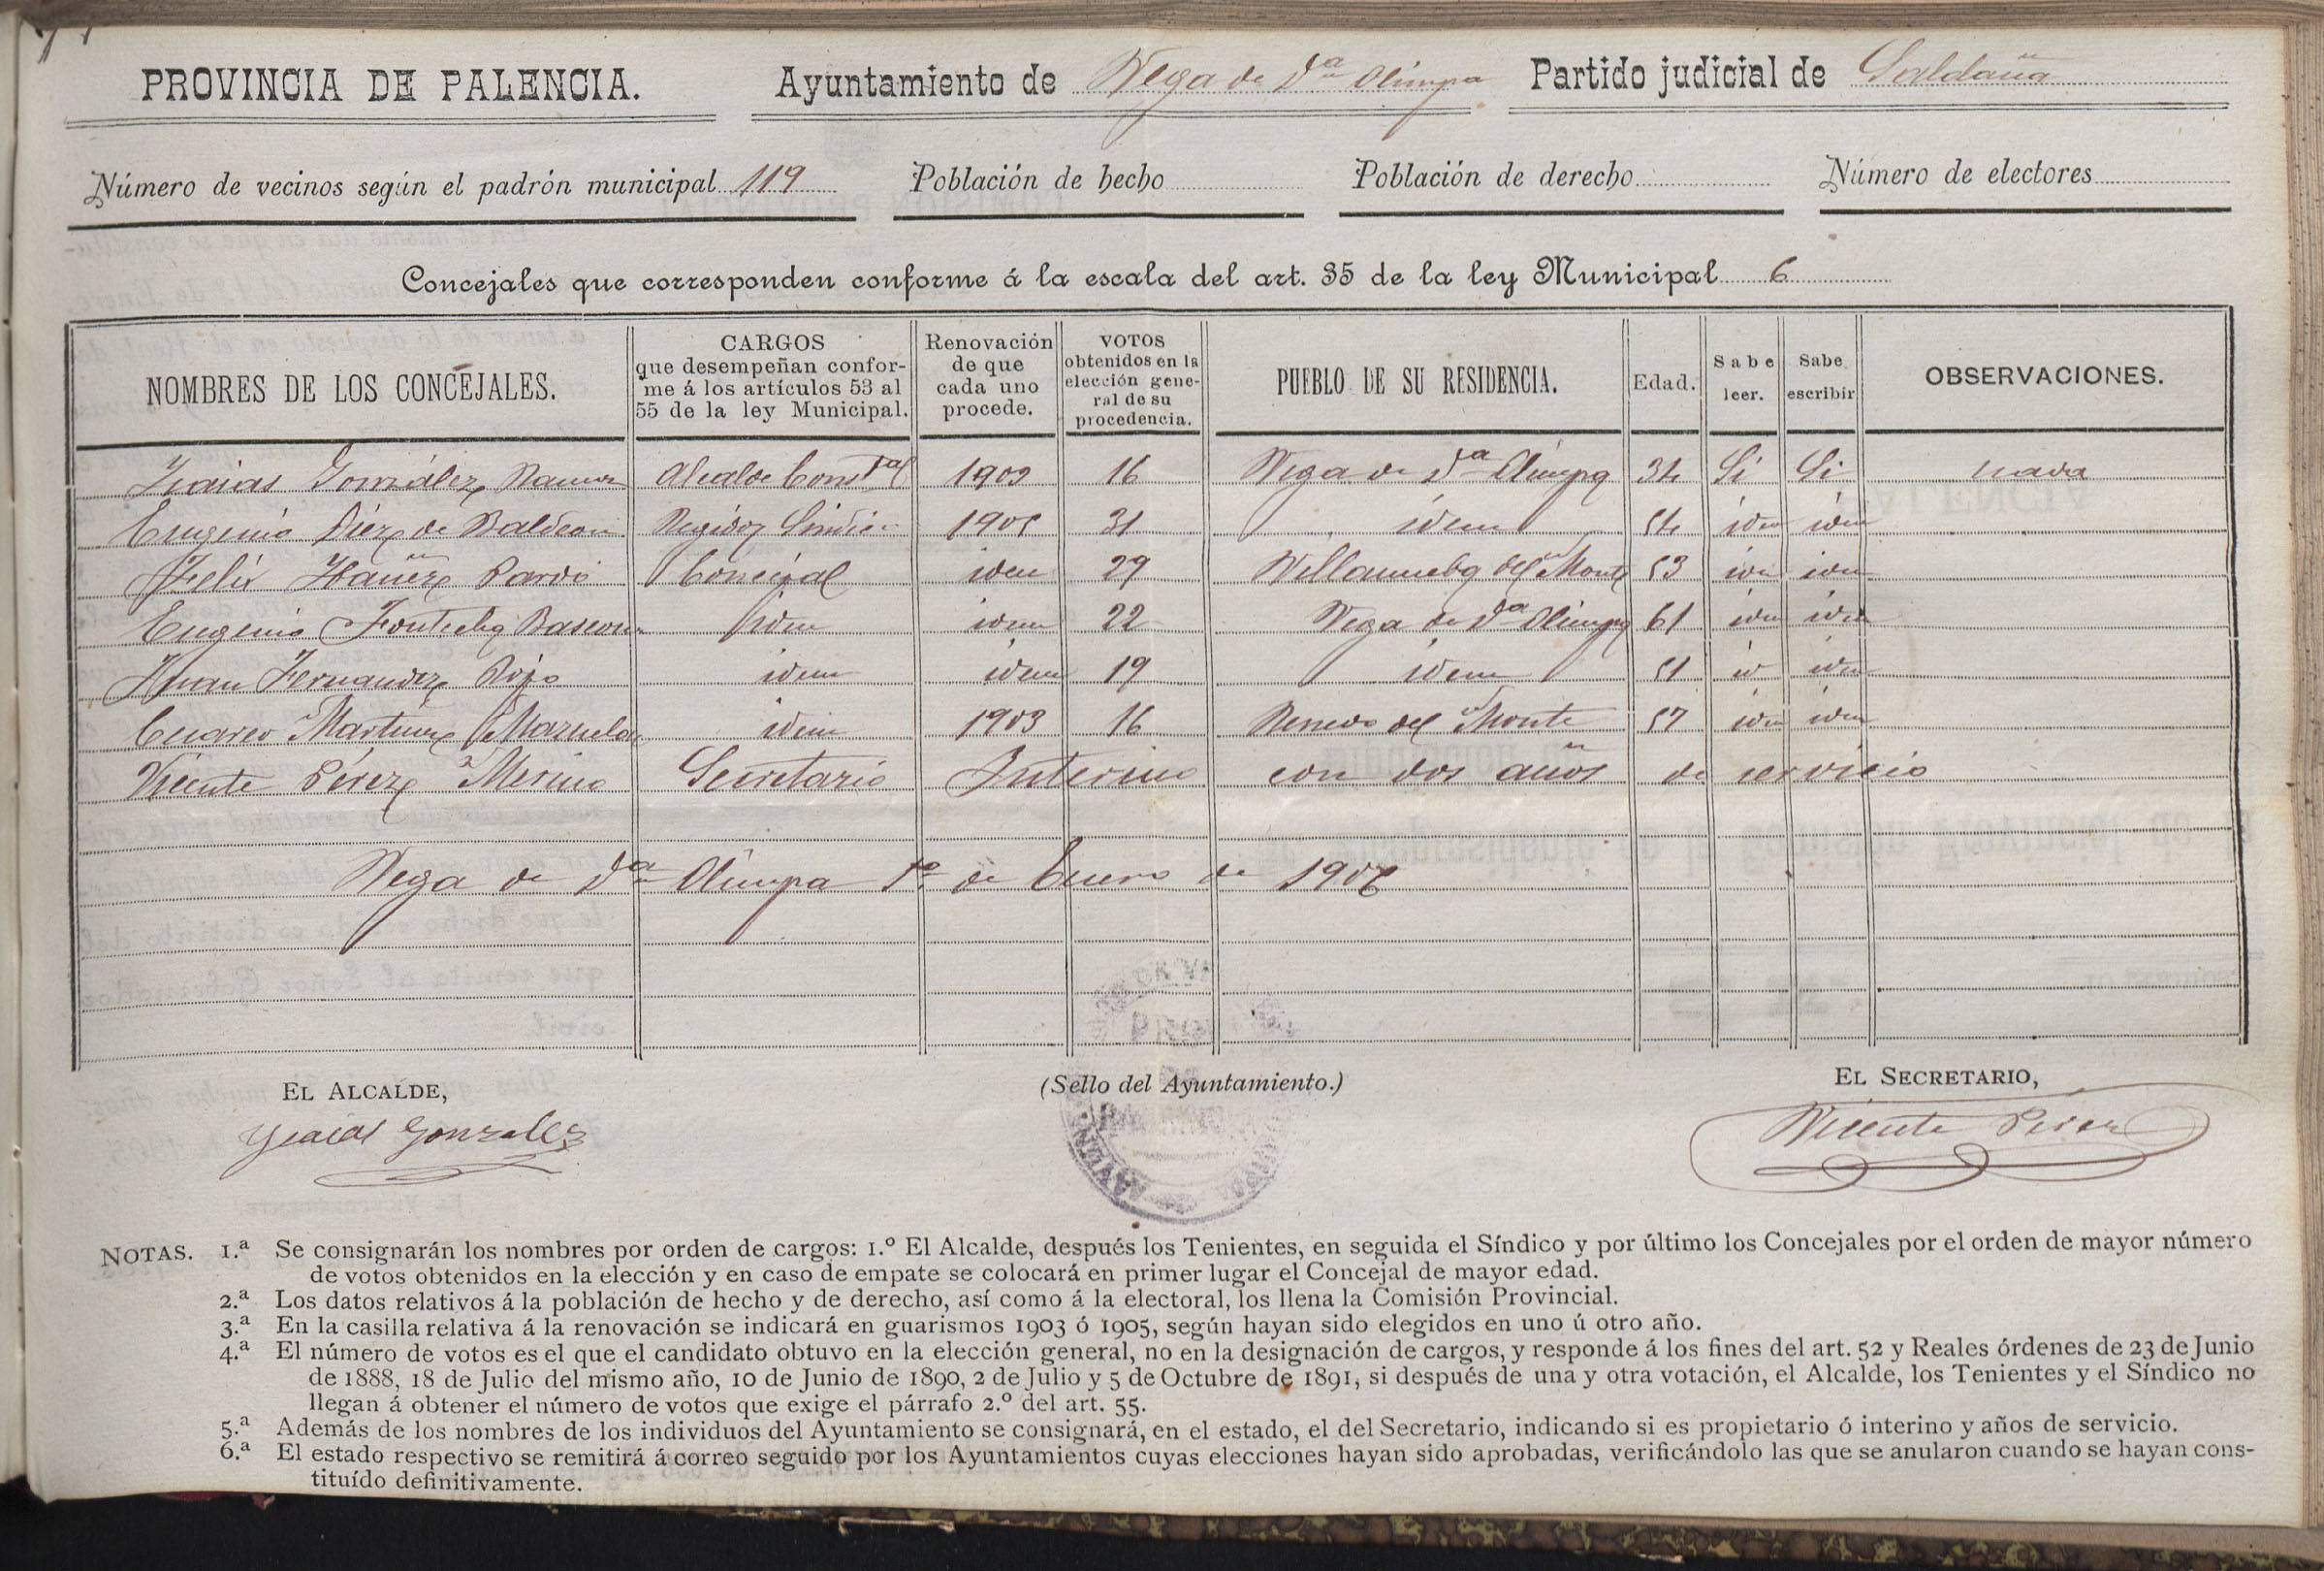 PROVINCIA DE PALENCIA. Ayuntamiento de Vega de D.ª Olimpa Partido judicial de Saldaña
Número de vecinos según el padrón municipal 119 Población de hecho Población de derecho Número de electores
Concejales que corresponden conforme á la escala del art. 35 de la ley Municipal 6
NOMBRES DE LOS CONCEJALES.
CARGOS
que desempeñan confor-
me á los artículos 53 al
55 de la ley Municipal.
Renovación
de que
cada uno
procede.
VOTOS
obtenidos en la
elección gene-
ral de su
procedencia.
PUEBLO DE SU RESIDENCIA.
Edad.
Sabe
leer.
Sabe
escribir
OBSERVACIONES.
Isaias González Ramos Alcalde Const.al 1903 16 Vega de D.ª Olimpa 34 Si Si nada
Eugenio Diez de Baldeon Regidor Sindico 1905 31 idem 54 idem idem
Felix Ibañez Pardo Concejal idem 29 Villanueba del Monte 53 idem idem
Eugenio Fontecha idem idem 22 Vega de D.ª Olimpa 61 idem idem
Juan Fernandez Rojo idem idem 19 idem 51 id idem
Martinez idem 1903 16 Renedo del Monte 57 idem idem
Vicente Pérez Merino Secretario Interino con dos años de servicio
Vega de D.ª Olimpa 1.º de Enero de 1906
EL ALCALDE,
(Sello del Ayuntamiento.)
EL SECRETARIO,
Ysaias Gonzalez
Vicente Perez
NOTAS. 1.ª Se consignarán los nombres por orden de cargos: 1.º El Alcalde, después los Tenientes, en seguida el Síndico y por último los Concejales por el orden de mayor número
de votos obtenidos en la elección y en caso de empate se colocará en primer lugar el Concejal de mayor edad.
2.ª Los datos relativos á la población de hecho y de derecho, así como á la electoral, los llena la Comisión Provincial.
3.ª En la casilla relativa á la renovación se indicará en guarismos 1903 ó 1905, según hayan sido elegidos en uno ú otro año.
4.ª El número de votos es el que el candidato obtuvo en la elección general, no en la designación de cargos, y responde á los fines del art. 52 y Reales órdenes de 23 de Junio
de 1888, 18 de Julio del mismo año, 10 de Junio de 1890, 2 de Julio y 5 de Octubre de 1891, si después de una y otra votación, el Alcalde, los Tenientes y el Síndico no
llegan á obtener el número de votos que exige el párrafo 2.º del art. 55.
5.ª Además de los nombres de los individuos del Ayuntamiento se consignará, en el estado, el del Secretario, indicando si es propietario ó interino y años de servicio.
6.ª El estado respectivo se remitirá á correo seguido por los Ayuntamientos cuyas elecciones hayan sido aprobadas, verificándolo las que se anularon cuando se hayan cons-
tituído definitivamente.